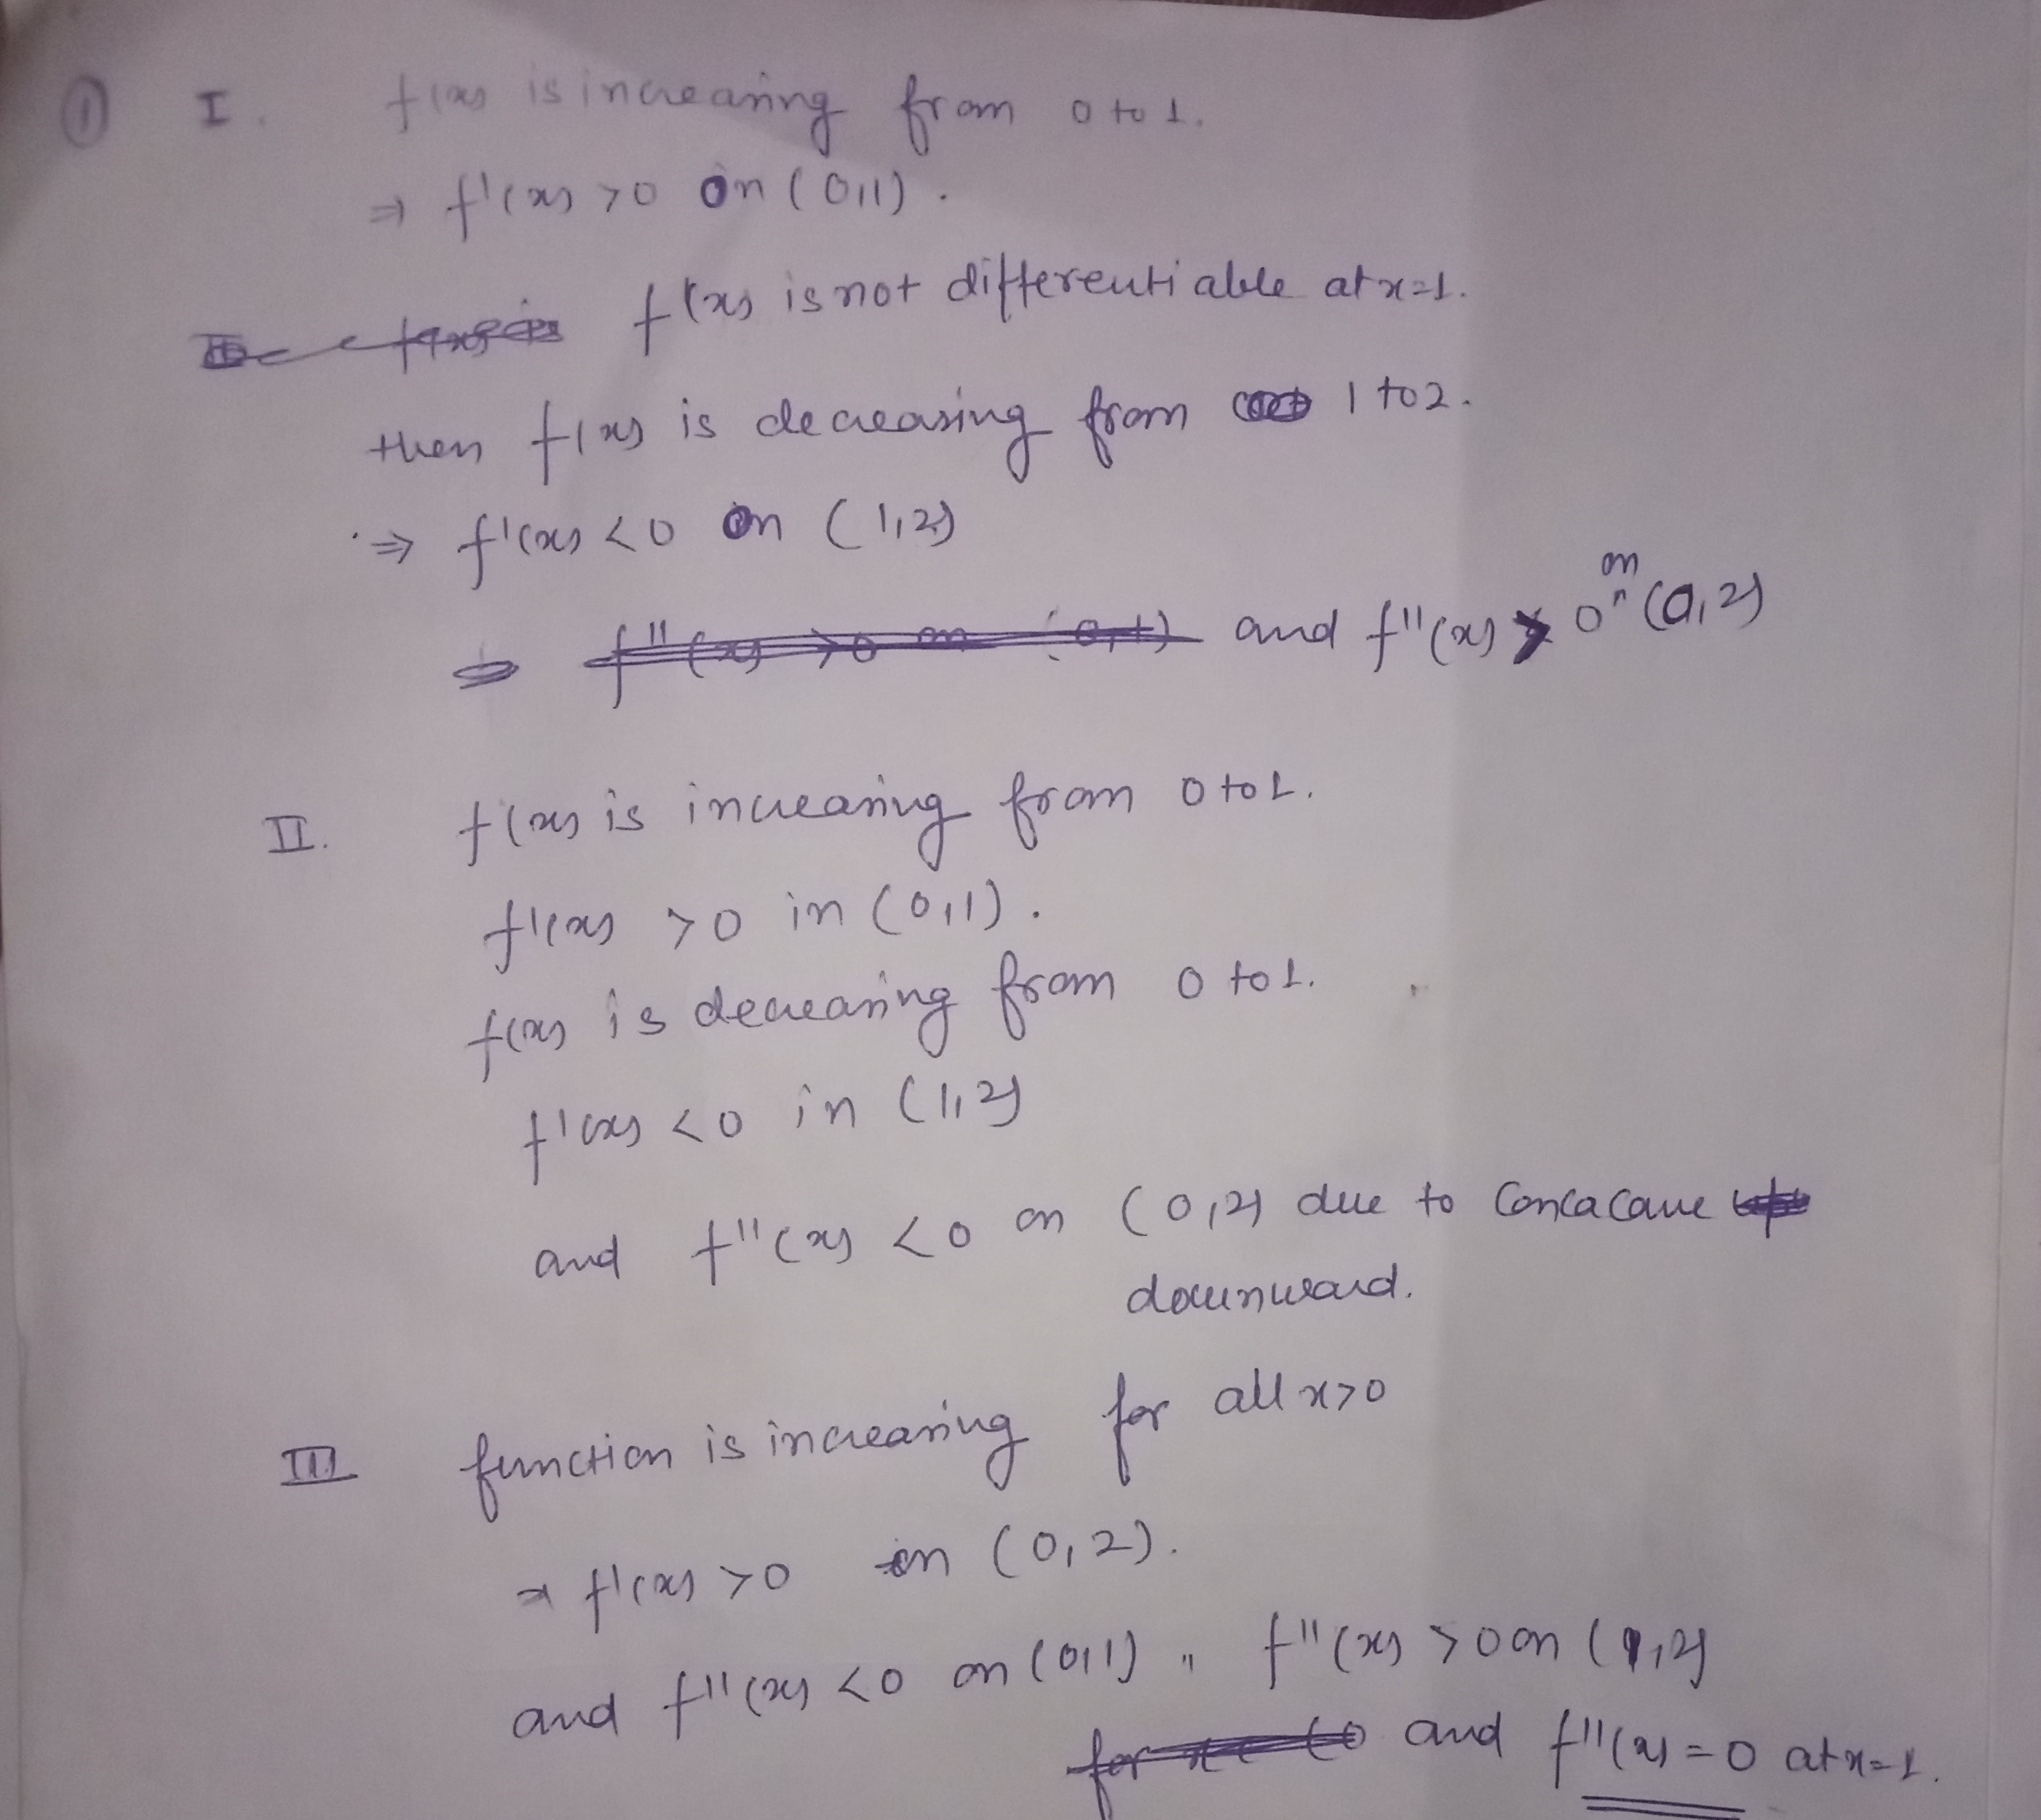 ① I. f(x) is increasing from 0 to 1.
⇒ f'(x) >0 on (0,1).
f(x) is not differentiable at x=1.
then f(x) is decreasing from 1 to 2.
⇒ f'(x) <0 on (1,2)
and f''(x) > 0 on (0,2)
II. f(x) is increasing from 0 to 1.
f'(x) >0 in (0,1).
f(x) is decreasing from 0 to 1.
f'(x) <0 in (1,2)
and f''(x) <0 on (0,2) due to Concacave
downward.
III function is increasing for all x>0
⇒ f'(x) >0 in (0,2).
and f''(x) <0 on (0,1) ,, f''(x) >0 on (1,2)
and f''(x) = 0 at x=1.